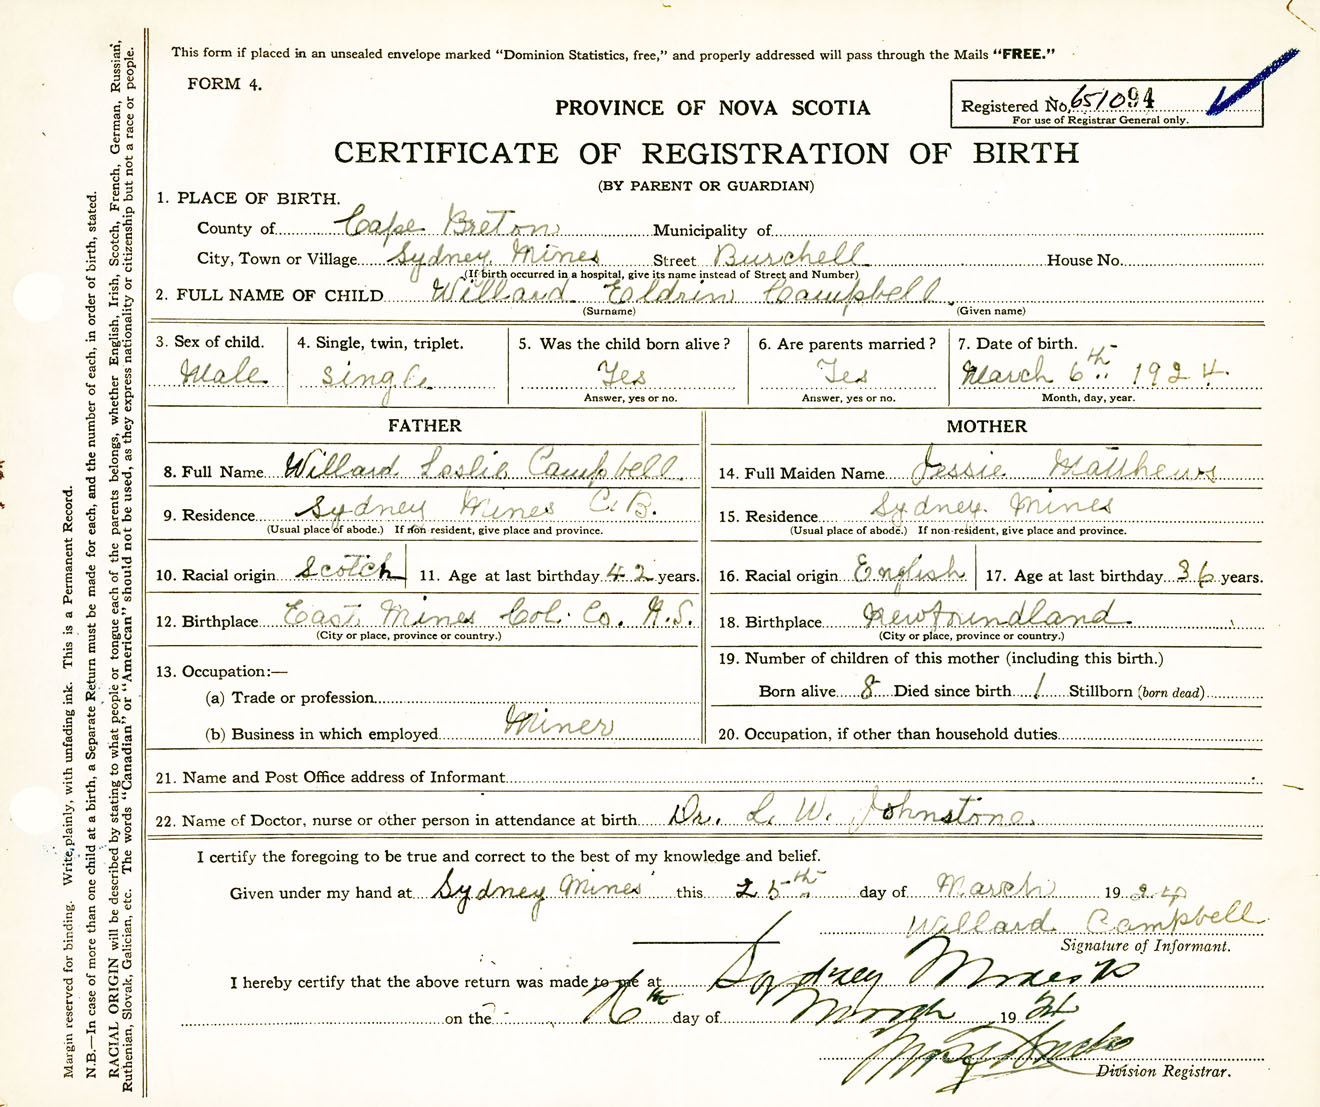 This form if placed in an unsealed envelope marked “Dominion Statistics, free,” and properly addressed will pass through the Mails “FREE.”
FORM 4.
PROVINCE OF NOVA SCOTIA
Registered No. 651094
For use of Registrar General only.
CERTIFICATE OF REGISTRATION OF BIRTH
(BY PARENT OR GUARDIAN)
1. PLACE OF BIRTH.
County of Cape Breton Municipality of
City, Town or Village Sydney Mines Street Burchell House No.
(If birth occurred in a hospital, give its name instead of Street and Number)
2. FULL NAME OF CHILD Willard Eldrin Campbell
(Surname) (Given name)
3. Sex of child. 4. Single, twin, triplet. 5. Was the child born alive? 6. Are parents married? 7. Date of birth.
Male Single Yes Yes March 6th 1924
Answer, yes or no. Answer, yes or no. Month, day, year.
FATHER
8. Full Name Willard Leslie Campbell
9. Residence Sydney Mines C.B.
(Usual place of abode.) If non-resident, give place and province.
10. Racial origin Scotch 11. Age at last birthday 42 years.
12. Birthplace East Mines Col. Co. N.S.
(City or place, province or country.)
13. Occupation:—
(a) Trade or profession
(b) Business in which employed Miner
MOTHER
14. Full Maiden Name Jessie Matthews
15. Residence Sydney Mines
(Usual place of abode.) If non-resident, give place and province.
16. Racial origin English 17. Age at last birthday 36 years.
18. Birthplace Newfoundland
(City or place, province or country.)
19. Number of children of this mother (including this birth.)
Born alive 8 Died since birth 1 Stillborn (born dead)
20. Occupation, if other than household duties
21. Name and Post Office address of Informant
22. Name of Doctor, nurse or other person in attendance at birth Dr. L. W. Johnstone.
I certify the foregoing to be true and correct to the best of my knowledge and belief.
Given under my hand at Sydney Mines this 25th day of March 1924
Willard Campbell
Signature of Informant.
I hereby certify that the above return was made to me at Sydney Mines
on the 26th day of March 19 24
Division Registrar.
Margin reserved for binding. Write plainly, with unfading ink. This is a Permanent Record.
N.B.—In case of more than one child at a birth, a Separate Return must be made for each, and the number of each, in order of birth, stated.
RACIAL ORIGIN will be described by stating to what people or tongue each of the parents belongs, whether English, Irish, Scotch, French, German, Russian,
Ruthenian, Slovak, Galician, etc. The words “Canadian” or “American” should not be used, as they express nationality or citizenship but not a race or people.